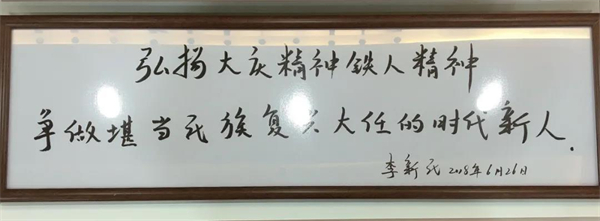 弘扬大庆精神铁人精神
争做堪当民族复兴大任的时代新人.
李新民 2018年6月26日